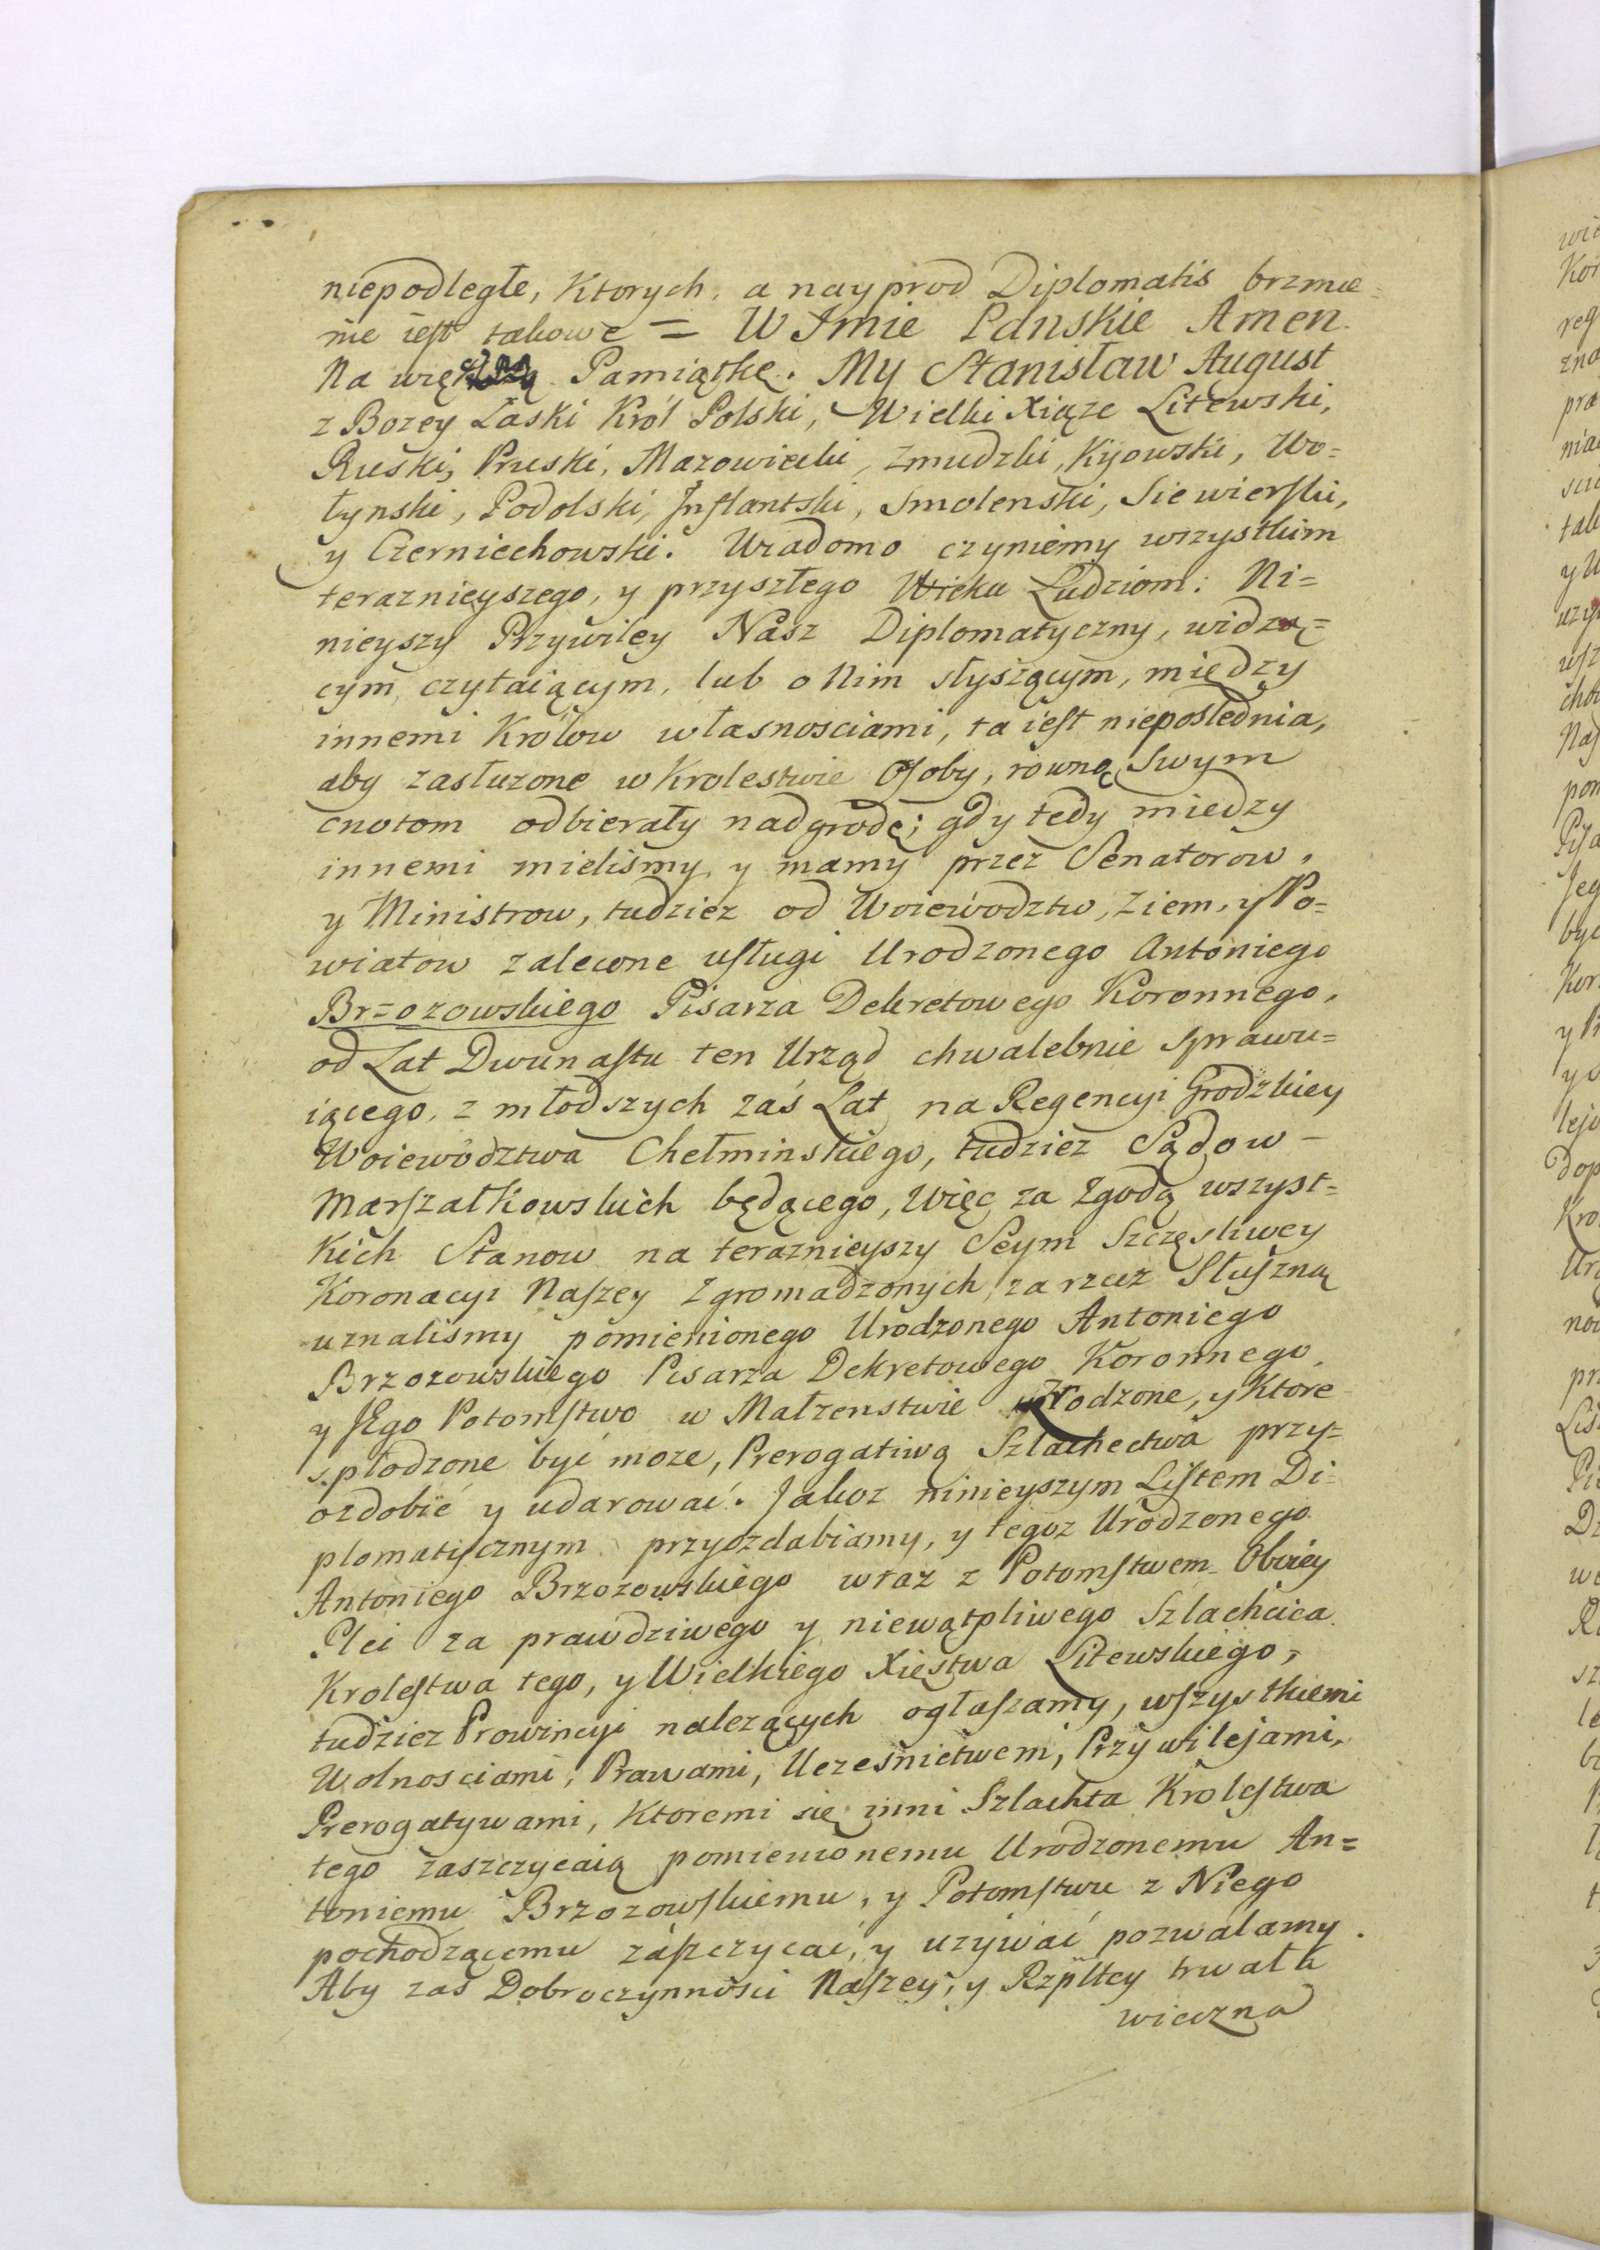 niepodległe, Ktorych, a nayprod Diplomatis brzmie=
nie iest takowe = W Jmie Panskie Amen.
Na więkrzą Pamiątkę. My Stanisław August
z Bozey Łaski Król Polski, Wielki Xiąze Litewski,
Ruski, Pruski, Mazowiecki, Zmudzki, Kijowski, Wo=
łynski, Podolski, Jnflantski, Smolenski, Siewierski,
y Czerniechowski. Wiadomo czyniemy wszystkim
teraznieyszego, y przyszłego Wieku Ludziom: Ni=
nieyszy Przywiley Nasz Diplomatyczny, widzą=
cym, czytaiącym, lub o Nim słyszącym, między
innemi Królow własnosciami, ta iest niepoślednia,
aby zasłuzone w Krolestwie Osoby, równą Swym
cnotom odbierały nadgrodę; gdy tedy miedzy
innemi mieliśmy, y mamy przez Senatorow,
y Ministrow, tudziez od Woiewodztw, Ziem, y Po=
wiatow zalecone usługi Urodzonego Antoniego
Brzozowskiego Pisarza Dekretowego Koronnego,
od Lat Dwunastu ten Urząd chwalebnie sprawu=
iącego, z młodszych zaś Lat na Regencyi Grodzkiey
Woiewodztwa Chełminskiego, tudziez Sądow
Marszałkowskich będącego, Więc za Zgodą wszyst=
kich Stanow na teraznieyszy Seym Szczęsliwey
Koronacyi Naszey Zgromadzonych, za rzecz Słuszną
uznaliśmy pomienionego Urodzonego Antoniego
Brzozowskiego Pisarza Dekretowego Koronnego,
y JEgo Potomstwo w Małzenstwie Zrodzone, y Ktore
spłodzone być moze, Prerogatiwą Szlachectwa przy=
ozdobić y udarować. Jakoz ninieyszym Listem Di=
plomatycznym przyozdabiamy, y tegoz Urodzonego
Antoniego Brzozowskiego wraz z Potomstwem Oboiey
Płci za prawdziwego y niewątpliwego Szlachcica
Krolestwa tego, y Wielkiego Xięstwa Litewskiego,
tudziez Prowincyi nalezących ogłaszamy, wszystkiemi
Wolnosciami, Prawami, Uczesnictwem, Przywilejami,
Prerogatywami, Ktoremi się inni Szlachta Krolestwa
tego zaszczycaią pomienionemu Urodzonemu An=
toniemu Brzozowskiemu, y Potomstwu z Niego
pochodzącemu zaszczycać, y uzywać pozwalamy.
Aby zaś Dobroczynności Naszey, y Rzpltey trwała
wieczna